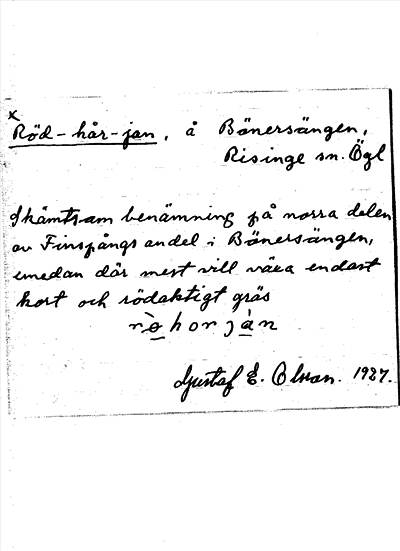 x
Röd-hår-jan, å Bönersängen,
Risinge sn. Ögl
Skämtsam benämning på norra delen
av Finspångs andel i Bönersängen,
emedan där mest vill växa endast
kort och rödaktigt gräs
rø̀horjàn
Gustaf E. Olsson. 1927.